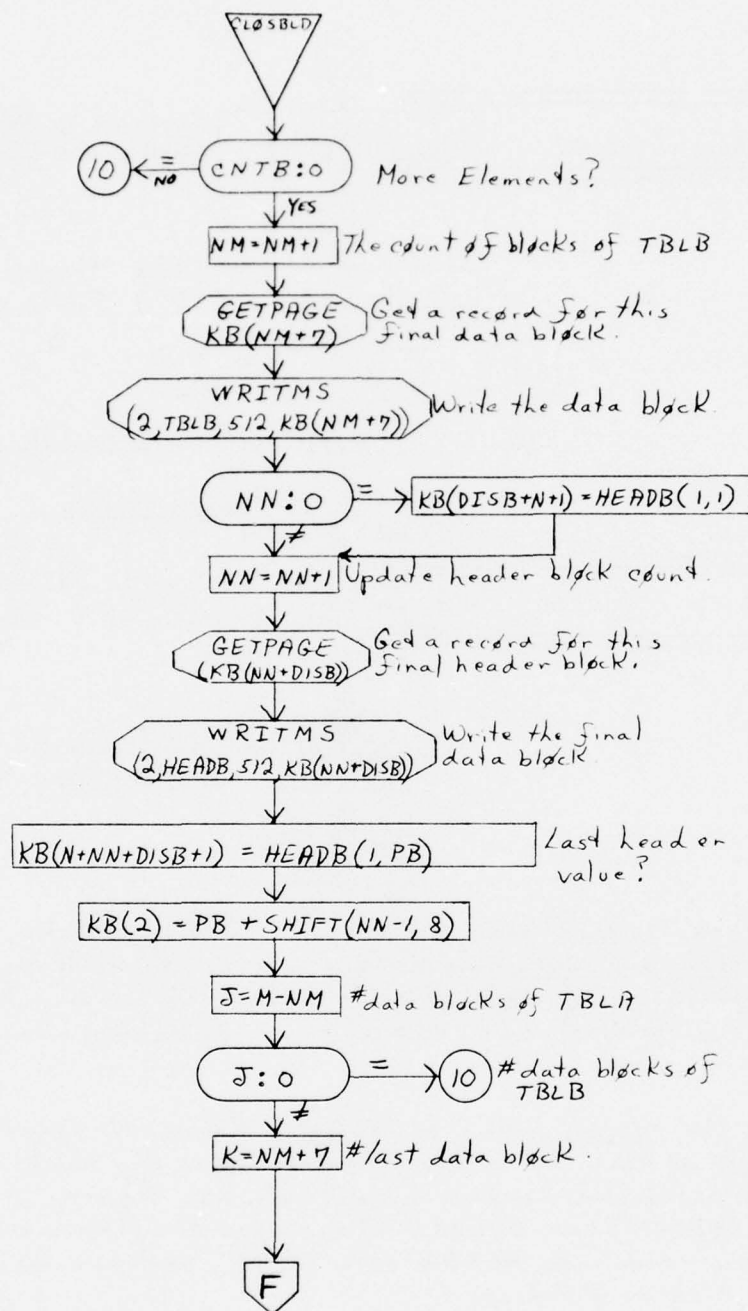 CLØSBLD
10
=
NO
CNTB:0
More Elements?
YES
NM=NM+1
The count øf bløcks of TBLB
GETPAGE
KB(NM+7)
Get a recørd før this
final data bløck.
WRITMS
(2,TBLB,512,KB(NM+7))
Write the data bløck.
NN:0
=
KB(DISB+N+1)=HEADB(1,1)
≠
NN=NN+1
Update header bløck cøunt.
GETPAGE
(KB(NN+DISB))
Get a recørd før this
final header bløck.
WRITMS
(2,HEADB,512,KB(NN+DISB))
Write the final
data bløck
KB(N+NN+DISB+1) = HEADB(1,PB)
Last header
value?
KB(2) = PB + SHIFT(NN-1,8)
J=M-NM
#data bløcks øf TBLA
J:0
=
10
#data bløcks øf
TBLB
≠
K=NM+7
#last data bløck.
F